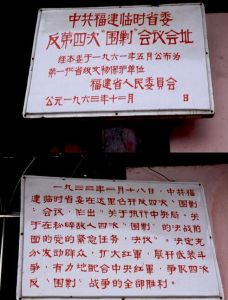 中共福建临时省委
反第四次“围剿”会议会址
经本委于一九六一年五月公布为
第一批省级文物保护单位
福建省人民委员会
公元一九六三年十二月 日
一九三三年一月十八日，中共福
建临时省委在这里召开反四次“围剿”
会议，作出“关于执行中央局，关
于在粉碎敌人四次“围剿”的决战前
面的党的紧急任务”决议”。决定充
分发动群众，扩大红军，展开武装斗
争，有力地配合中央红军，争取四次
反“围剿”战争的全部胜利。